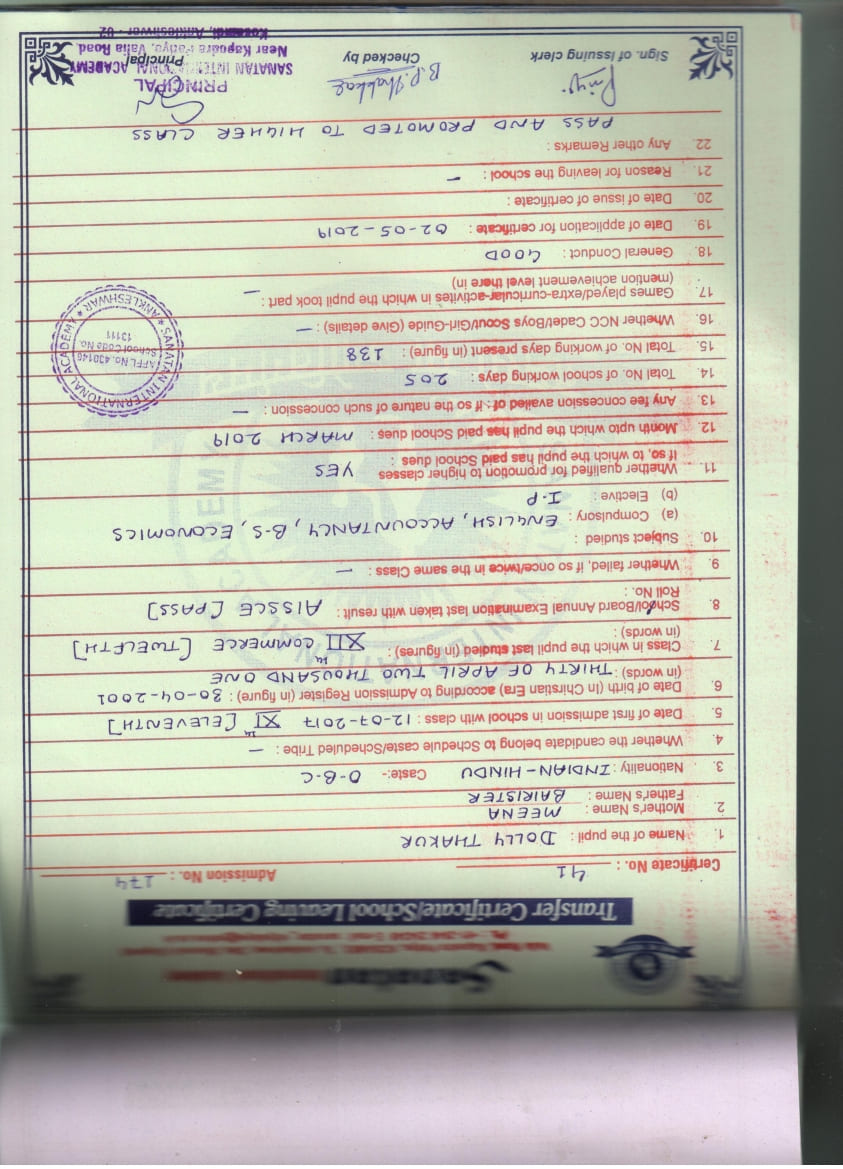 Sanatan
Transfer Certificate/School Leaving Certificate
Certificate No. : 41 Admission No. : 174
1. Name of the pupil : DOLLY THAKUR
2. Mother's Name : MEENA
Father's Name : BAIRISTER
3. Nationality : INDIAN-HINDU Caste:- O-B-C
4. Whether the candidate belong to Schedule caste/Scheduled Tribe : —
5. Date of first admission in school with class : 12-07-2017 XI th [ELEVENTH]
6. Date of birth (In Chirstian Era) according to Admission Register (in figure) : 30-04-2001
(in words) : THIRTY OF APRIL TWO THOUSAND ONE
7. Class in which the pupil last studied (in figures) : XII th COMMERCE [TWELFTH]
(in words) :
8. School/Board Annual Examination last taken with result : AISSCE [PASS]
Roll No. :
9. Whether failed, if so once/twice in the same Class : —
10. Subject studied :
(a) Compulsory : ENGLISH, ACCOUNTANCY, B-S, ECONOMICS
(b) Elective : I-P
11. Whether qualified for promotion to higher classes YES
If so, to which the pupil has paid School dues :
12. Month upto which the pupil has paid School dues : MARCH 2019
13. Any fee concession availed of : if so the nature of such concession : —
14. Total No. of school working days : 205
15. Total No. of working days present (in figure) : 138
16. Whether NCC Cadet/Boys Scout/Girl-Guide (Give details) : —
17. Games played/extra-curricular-activites in which the pupil took part : —
(mention achievement level there in)
18. General Conduct : GOOD
19. Date of application for certificate : 02-05-2019
20. Date of issue of certificate :
21. Reason for leaving the school : —
22. Any other Remarks :
PASS AND PROMOTED TO HIGHER CLASS
SANATAN INTERNATIONAL ACADEMY * ANKLESHWAR *
AFFL No. 430146
School Code No.
13111
Priya B.P. Thakkar
Sign. of Issuing clerk Checked by Principal
PRINCIPAL
SANATAN INTERNATIONAL ACADEMY
Near Kapodra Patiya, Valia Road,
Kosamdi, Ankleshwar - 02